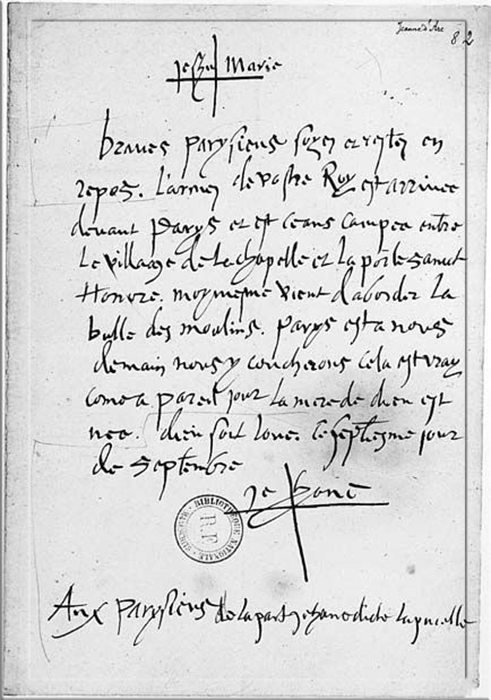 Jeanne d'Arc
82
Jesus Marie
braves parysiens soyez et restez en
repos. L'armee de vostre Roy est arrivee
devant Parys et est ceans campee entre
Le village de La chapelle et La porte Sainct
Honore. moy mesme vient d'aborder La
butte des moulins. parys est a nous
demain nous y coucherons cela est vray
come a pareil jour La mere de dieu est
nee. dieu soit Loue. Ce septiesme jour
de Septembre
Jehane
BIBLIOTHEQUE NATIONALE
R.F.
Aux Parysiens de La part Jehane dicte La pucelle